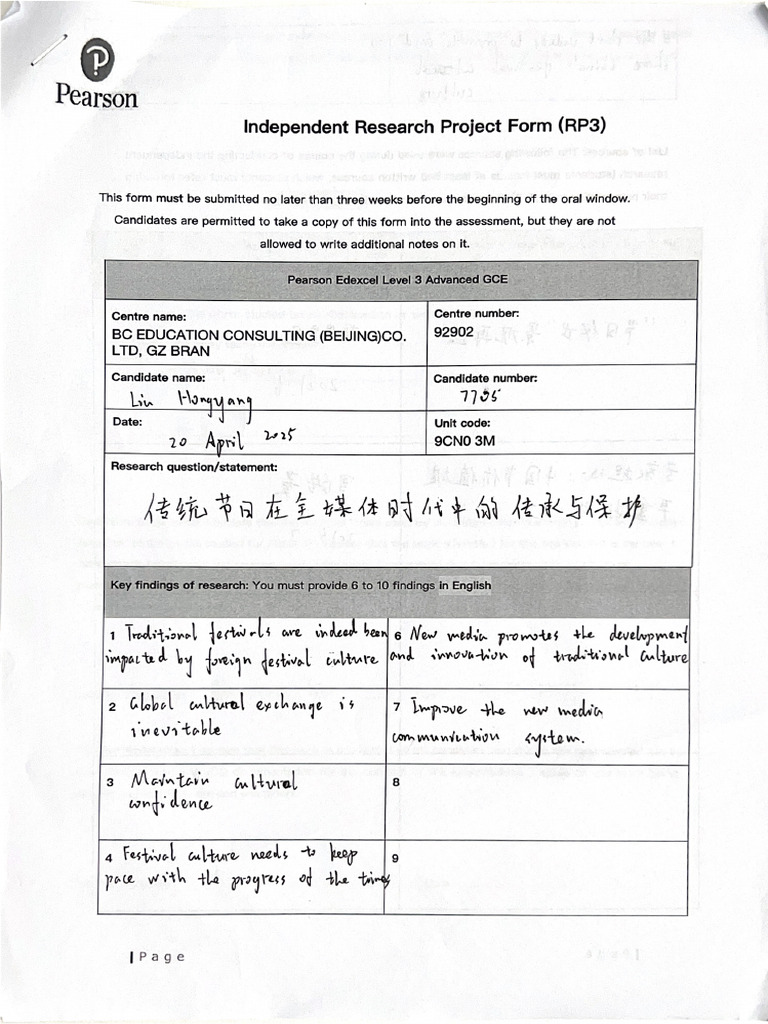 Pearson
Independent Research Project Form (RP3)
This form must be submitted no later than three weeks before the beginning of the oral window.
Candidates are permitted to take a copy of this form into the assessment, but they are not
allowed to write additional notes on it.
Pearson Edexcel Level 3 Advanced GCE
Centre name:
BC EDUCATION CONSULTING (BEIJING)CO.
LTD, GZ BRAN
Centre number:
92902
Candidate name:
Liu Hongyang
Candidate number:
7705
Date:
20 April 2025
Unit code:
9CN0 3M
Research question/statement:
传统节日在全媒体时代中的传承与保护
Key findings of research: You must provide 6 to 10 findings in English
1 Traditional festivals are indeed been
impacted by foreign festival culture
6 New media promotes the development
and innovation of traditional culture
2 Global cultural exchange is
inevitable
7 Improve the new media
communication system.
3 Maintain cultural
confidence
8
4 Festival culture needs to keep
pace with the progress of the times
9
| Page